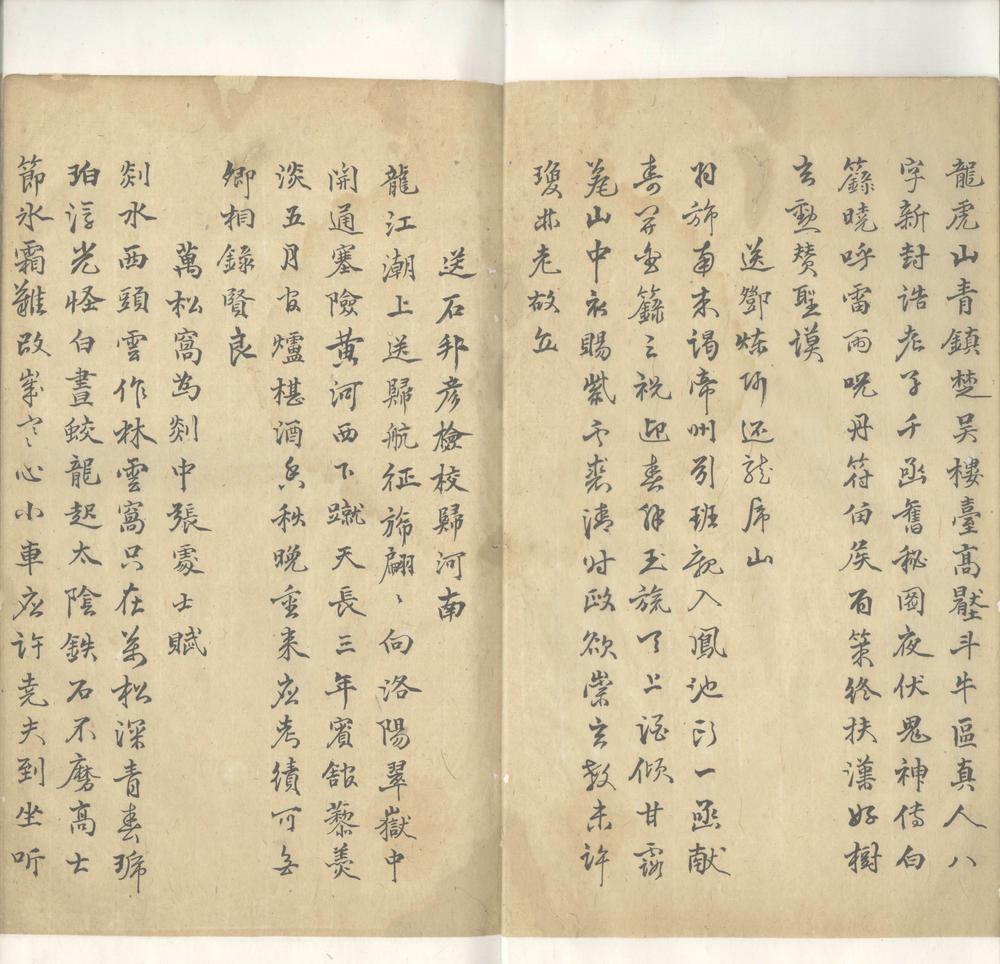 龍虎山青鎮楚吳樓臺高壓斗牛區真人八
字新封誥老子千函舊秘圖夜伏鬼神傳白
籙曉呼雷雨咒丹符留侯有策終扶漢好樹
玄勲贊聖謨
送鄧煉師還龍虎山
羽斾南来謁帝州引班親入鳳池頭一函献
壽開金籙三祝迎春拜玉旒天上酒傾甘露
山中衣賜紫雲裘清時政欲崇玄教未許
瓊林老故丘
送石邦彦檢校歸河南
龍江潮上送歸航征斾翩〻向洛陽翠嶽中
開通塞險黄河西下蹴天長三年賓舘藜羮
淡五月官爐椹酒香秋晚重来應考績可無
卿相錄賢良
萬松窩為剡中張處士賦
剡水西頭雲作林雲窩只在萬松深青春琥
珀浮光怪白晝蛟龍起太陰鉄石不磨高士
節氷霜難改歲寒心小車应許堯夫到坐听